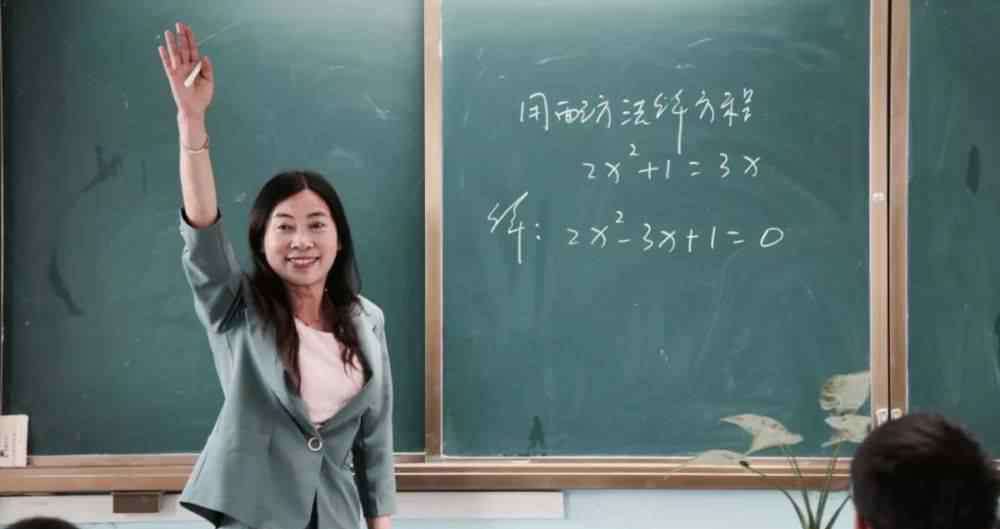 用配方法解方程
2x²+1=3x
解：2x²-3x+1=0